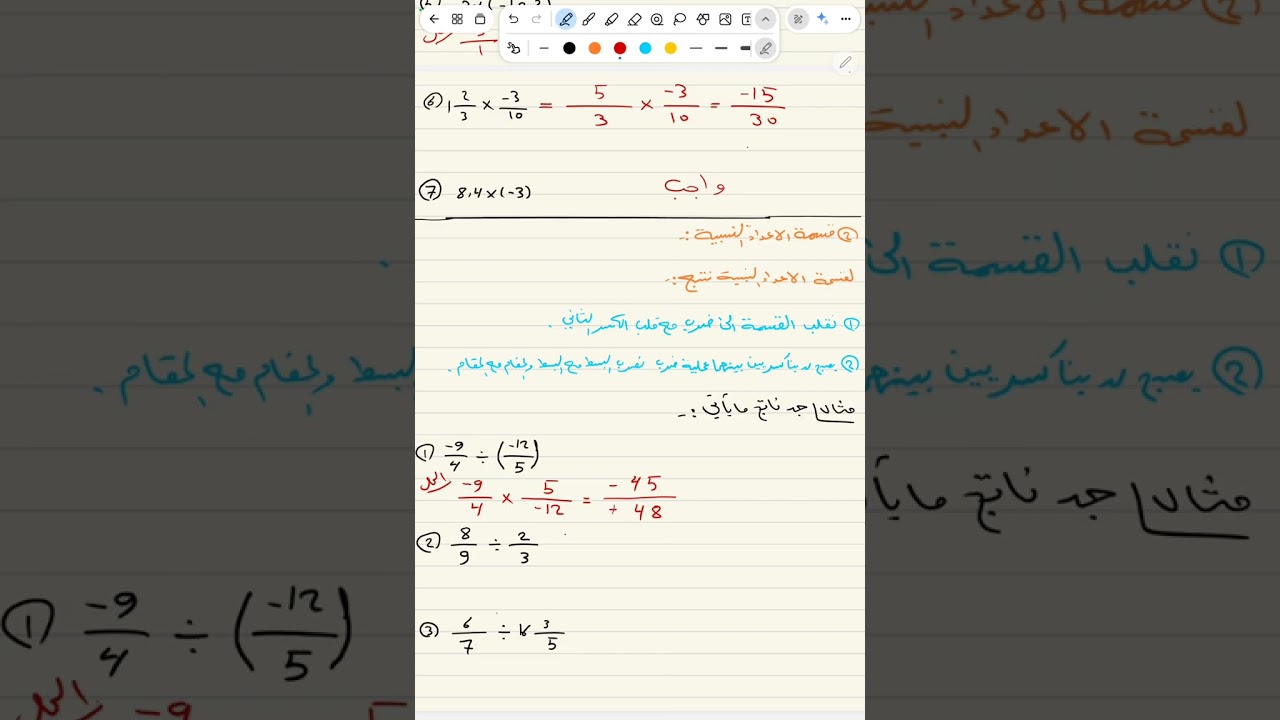 ⑥ 1 2/3 × -3/10 = 5/3 × -3/10 = -15/30
⑦ 8.4 × (-3) واجب
② قسمة الاعداد النسبية :-
لقسمة الاعداد النسبية نتبع :-
① نقلب القسمة الى ضرب مع قلب الكسر الثاني .
② يصبح لدينا كسريين بينهما عملية ضرب نضرب البسط مع البسط والمقام مع المقام .
مثال/ جد ناتج ما يأتي :-
① -9/4 ÷ (-12/5)
الحل -9/4 × 5/-12 = - 45/+ 48
② 8/9 ÷ 2/3
③ 6/7 ÷ 3/5